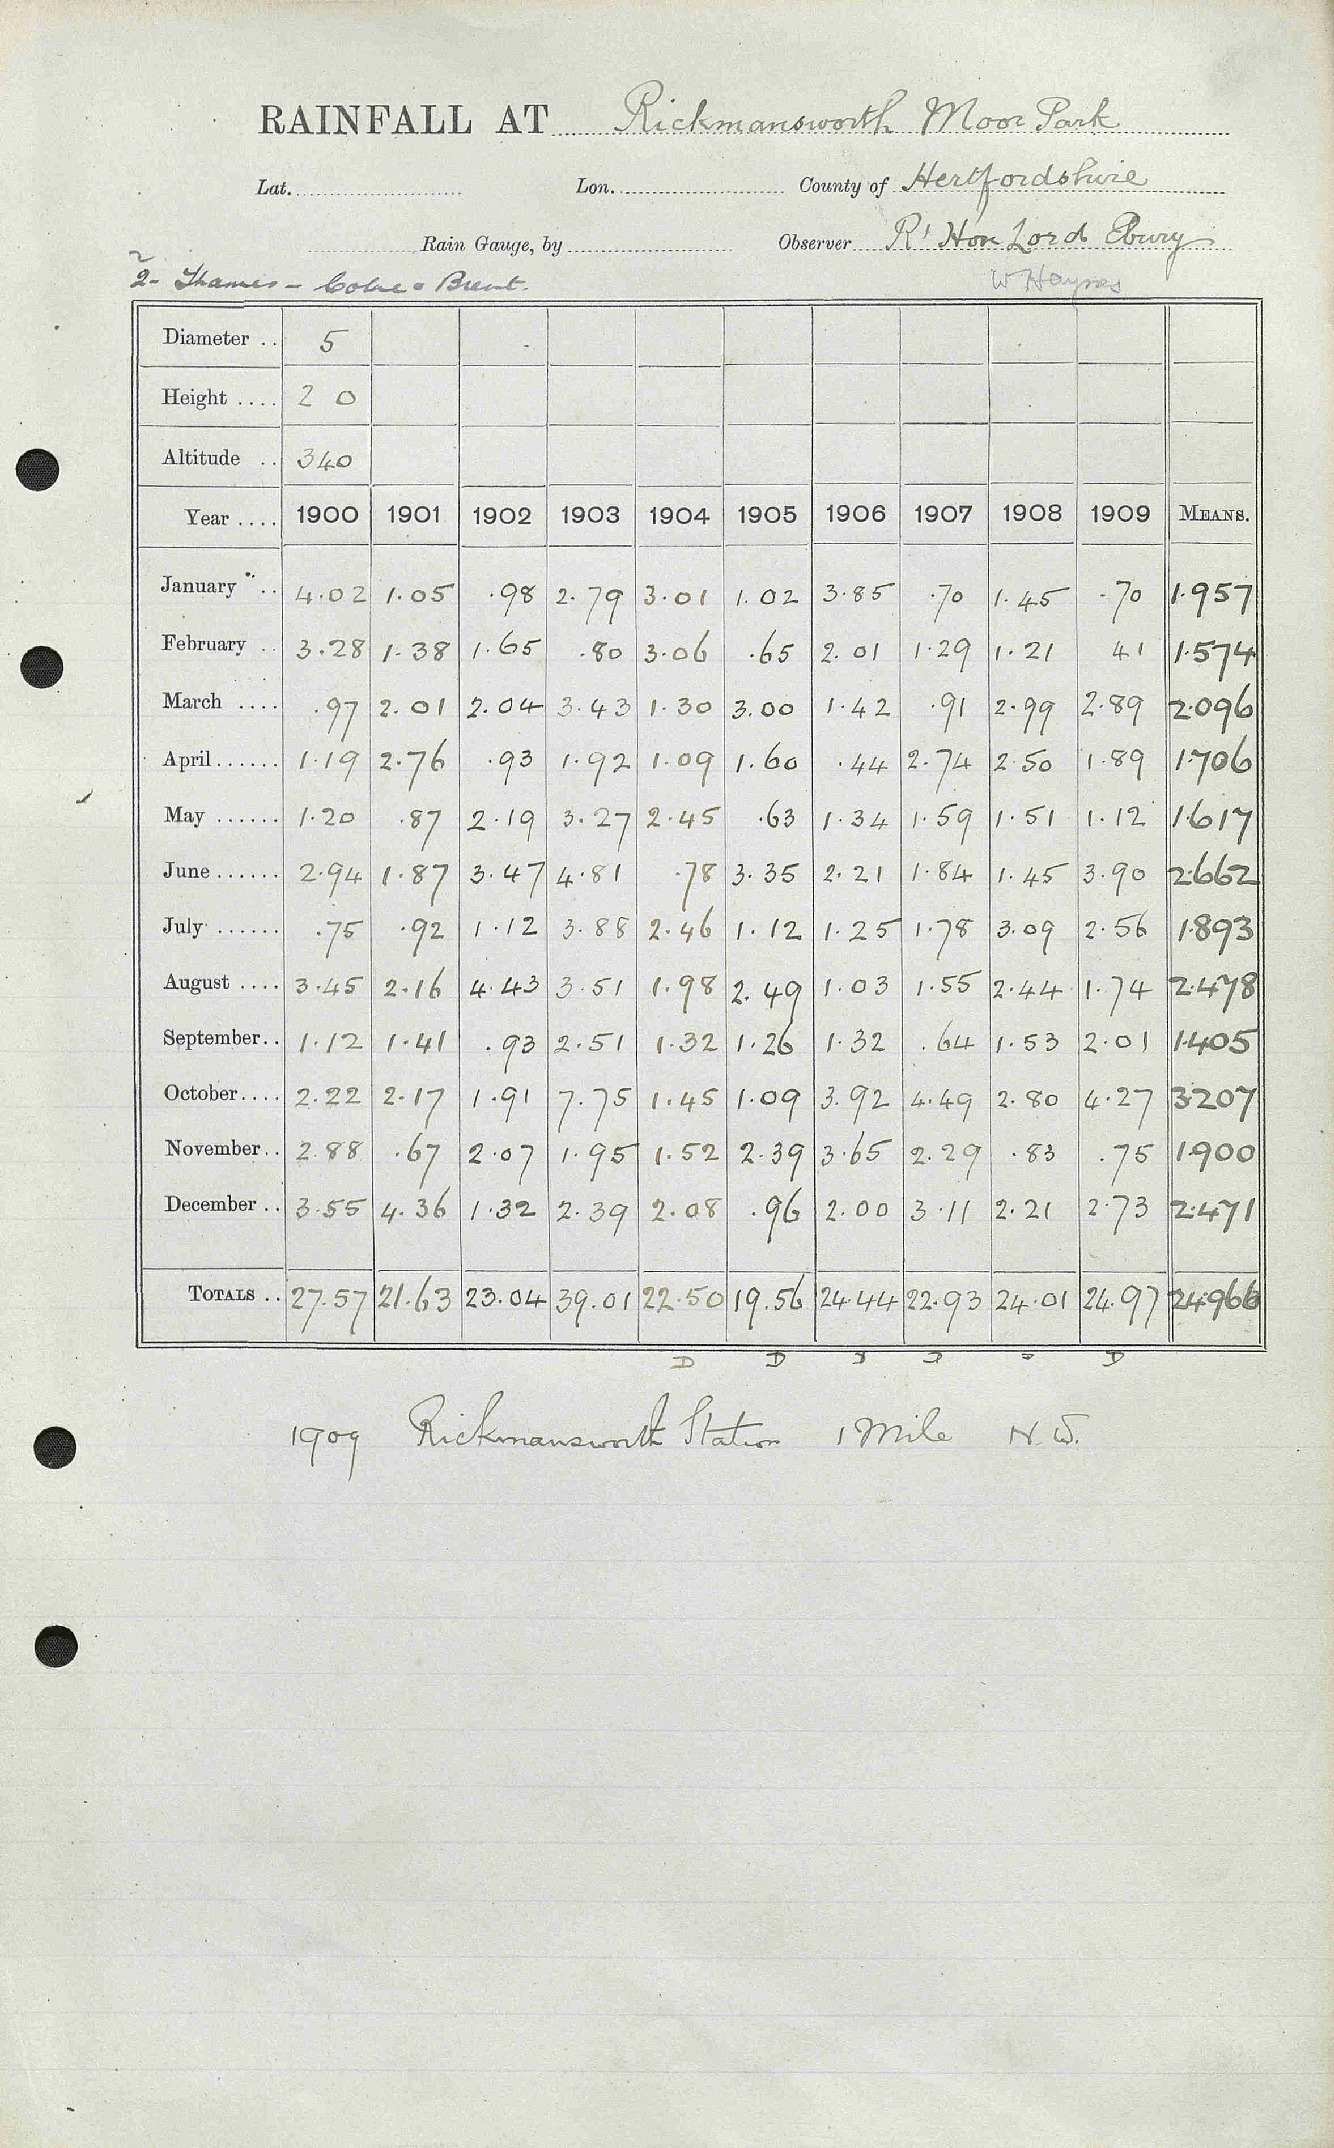 RAINFALL AT Rickmansworth Moor Park
Lat. Lon. County of Hertfordshire
Rain Gauge, by Observer Rt Hon Lord Ebury
2 - Thames - Colne & Brent. W Haynes
Diameter .. 5
Height .... 2 0
Altitude .. 340
Year .... 1900 1901 1902 1903 1904 1905 1906 1907 1908 1909 MEANS.
January .. 4.02 1.05 .98 2.79 3.01 1.02 3.85 .70 1.45 .70 1.957
February .. 3.28 1.38 1.65 .80 3.06 .65 2.01 1.29 1.21 41 1.574
March .... .97 2.01 2.04 3.43 1.30 3.00 1.42 .91 2.99 2.89 2.096
April ...... 1.19 2.76 .93 1.92 1.09 1.60 .44 2.74 2.50 1.89 1.706
May ...... 1.20 .87 2.19 3.27 2.45 .63 1.34 1.59 1.51 1.12 1.617
June ...... 2.94 1.87 3.47 4.81 .78 3.35 2.21 1.84 1.45 3.90 2.662
July ...... .75 .92 1.12 3.88 2.46 1.12 1.25 1.78 3.09 2.56 1.893
August .... 3.45 2.16 4.43 3.51 1.98 2.49 1.03 1.55 2.44 1.74 2.478
September .. 1.12 1.41 .93 2.51 1.32 1.26 1.32 .64 1.53 2.01 1.405
October .... 2.22 2.17 1.91 7.75 1.45 1.09 3.92 4.49 2.80 4.27 3.207
November .. 2.88 .67 2.07 1.95 1.52 2.39 3.65 2.29 .83 .75 1.900
December .. 3.55 4.36 1.32 2.39 2.08 .96 2.00 3.11 2.21 2.73 2.471
TOTALS .. 27.57 21.63 23.04 39.01 22.50 19.56 24.44 22.93 24.01 24.97 24.966
D D D D D
1909 Rickmansworth Station 1 Mile N.W.